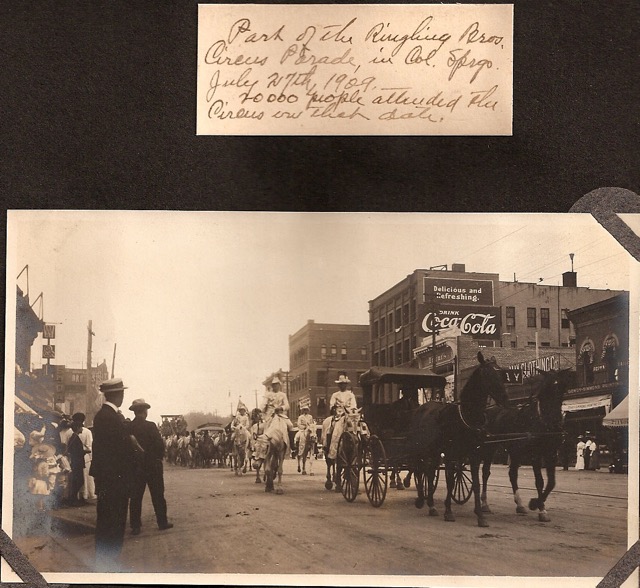 Part of the Ringling Bros.
Circus Parade, in Col. Sprgs.
July 27th, 1909.
20000 people attended the
Circus on that date.
Delicious and
Refreshing.
DRINK
Coca-Cola
CLOTHING CO